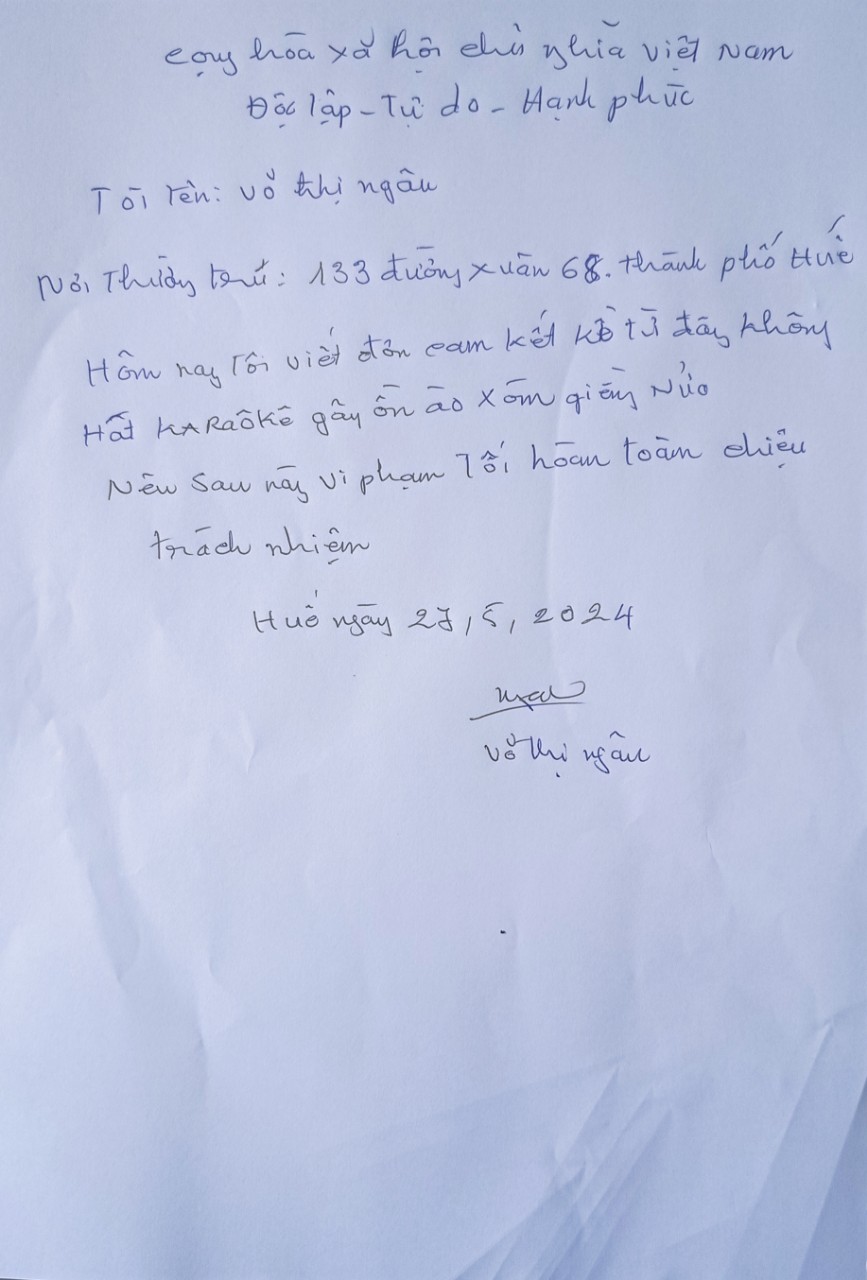 cọng hòa xã hội chủ nghĩa việt Nam
Độc lập - Tự do - Hạnh phúc
Tôi tên: Võ thị ngâu
Nơi Thường trú: 133 đường xuân 68. thành phố Huế
Hôm nay Tôi viết đơn cam kết kể từ đây không
Hát KARaôKê gây ồn ào xóm giềng Nữa
Nếu sau này vi phạm Tôi hoàn toàn chiệu
trách nhiệm
Huế ngày 27, 5, 2024
Võ thị ngâu